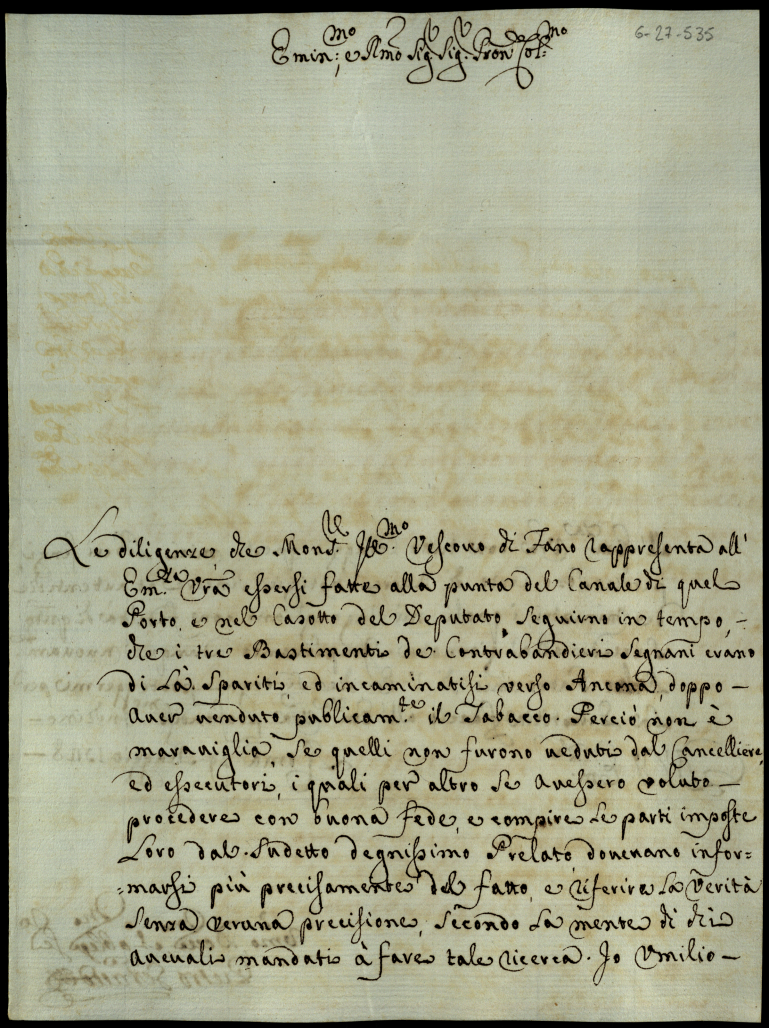 6-27-535
Emin:mo, e Rmo Sig. Sig. Pron Col:mo
Le diligenze, che Mons.r Ill.mo Vescovo di Fano rappresenta all'
Em.za Vra essersi fatte alla punta del Canale di quel
Porto, e nel Casotto del Deputato, seguirno in tempo, –
che i tre Bastimenti de Contrabandieri Segnani erano
di là spariti, ed incaminatisi verso Ancona, doppo –
aver venduto publicam.te il Tabacco. Perciò non è
maraviglia, se quelli non furono veduti dal Cancelliere,
ed essecutori, i quali per altro se avessero voluto –
procedere con buona fede, e compire le parti imposte
Loro dal Sudetto degnissimo Prelato, dovevano infor=
=marsi più precisamente del fatto, e riferire la verità
senza veruna precisione, secondo la mente di chi
aveuali mandati à fare tale ricerca. Io Umilio –